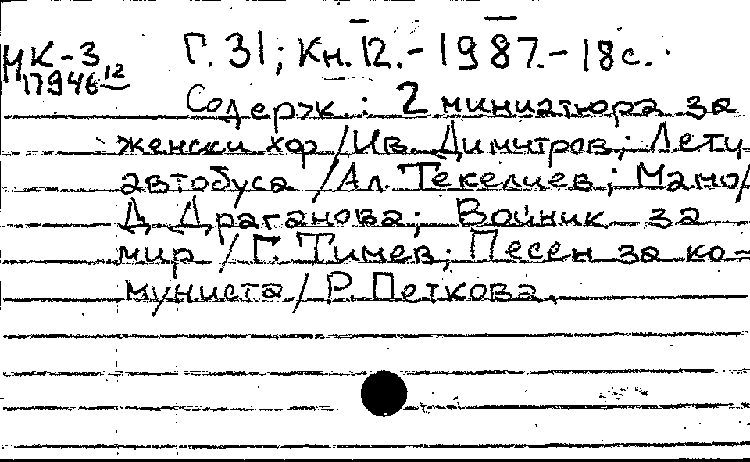 МК-3 Г. 31; Кн. 12. - 1987. - 18 с.
17946 12
Содерж.: 2 миниатюра за
женски хор / Ив. Димитров; Лети
автобуса / Ал. Текелиев; Мамо /
Д. Драганова; Войник за
мир / Г. Тимев; Песен за ко-
муниста / Р. Петкова.